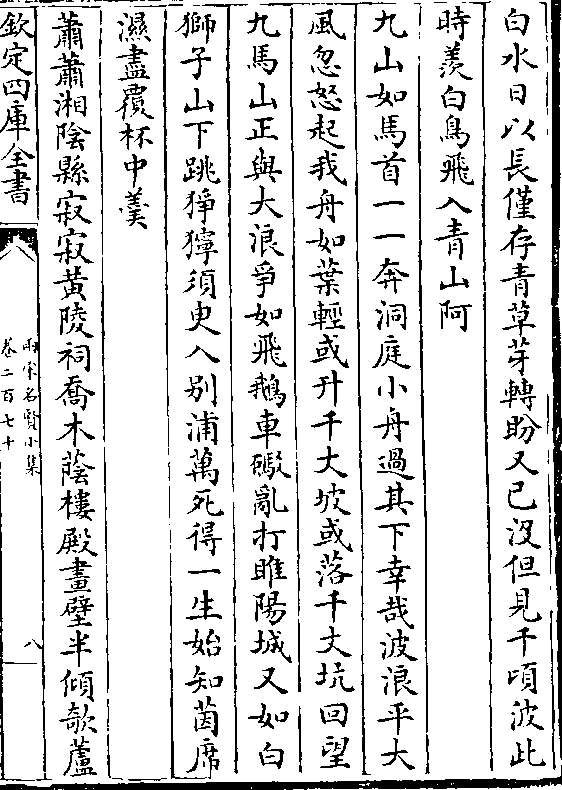 白水日以長僅存青草芽轉盼又已沒但見千頃波此
時羨白鳥飛入青山阿
九山如馬首一一奔洞庭小舟過其下幸哉波浪平大
風忽怒起我舟如葉輕或升千丈坡或落千丈坑回望
九馬山正與大浪爭如飛鵝車礟亂打睢陽城又如白
獅子山下跳猙獰須臾入别浦萬死得一生始知茵席
濕盡覆杯中羮
蕭蕭湘隂縣寂寂黄陵祠喬木蔭樓殿畫壁半傾欹蘆
欽定四庫全書
兩宋名賢小集
卷二百七十
八